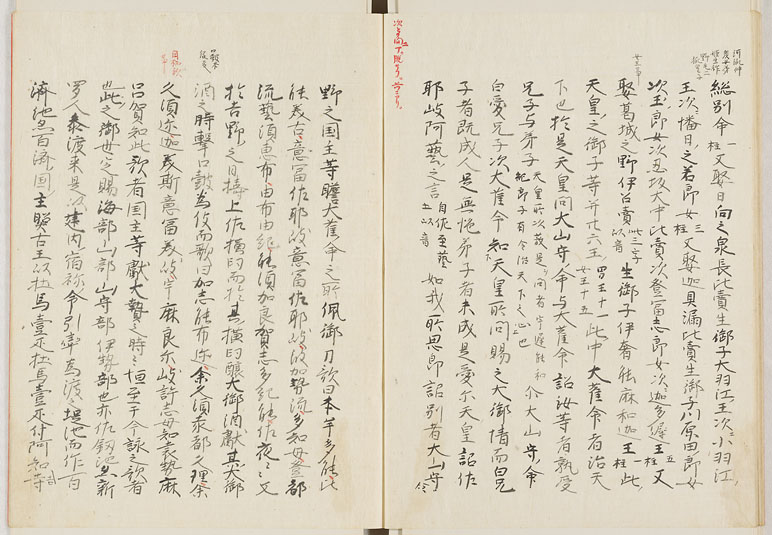 総別命一柱又娶日向之泉長比賣生御子大羽江王次小羽江
王次幡日之若郎女三柱又娶迦具漏比賣生御子川原田郎女
次玉郎女次忍坂大中比賣次登富志郎女次迦多遅王五柱又
娶葛城之野伊呂賣此三字以音生御子伊奢能麻和迦王一柱此
天皇之御子等并廿六王男王十一女王十五此中大雀命者治天
下也於是天皇問大山守命与大雀命詔汝等者孰愛
兄子与弟子天皇所以發是問者宇遅能和紀郎子有令治天下之心也尓大山守命
白愛兄子次大雀命知天皇所問賜之大御情而白兄
子者既成人是無悒弟子者未成是愛尓天皇詔佐
耶岐阿藝之言自佐至藝五以音如我所思即詔別者大山守命
野之国主等瞻大雀命之所佩御刀歌曰本牟多能比
能美古意冨佐耶岐意冨佐耶岐波加勢流多知母登都
流藝須恵布由布由紀能須加良賀志多紀能佐夜々々又
於吉野之白檮上作横臼而於其横臼醸大御酒獻其大御
酒之時撃口鼓為伎而歌曰加志能布迩余久須袁都久理余
久須迩迦美斯意冨美岐宇麻良尓岐許志母知袁勢麻
呂賀知此歌者国主等獻大贄之時々恒至于今詠之歌者
也此之御世定賜海部山部山守部伊勢部也亦作釼池亦新
羅人参渡来是以建内宿祢命引率為渡之堤池而作百
濟池亦百濟国主照古王以牡馬壹疋牝馬壹疋付阿知吉